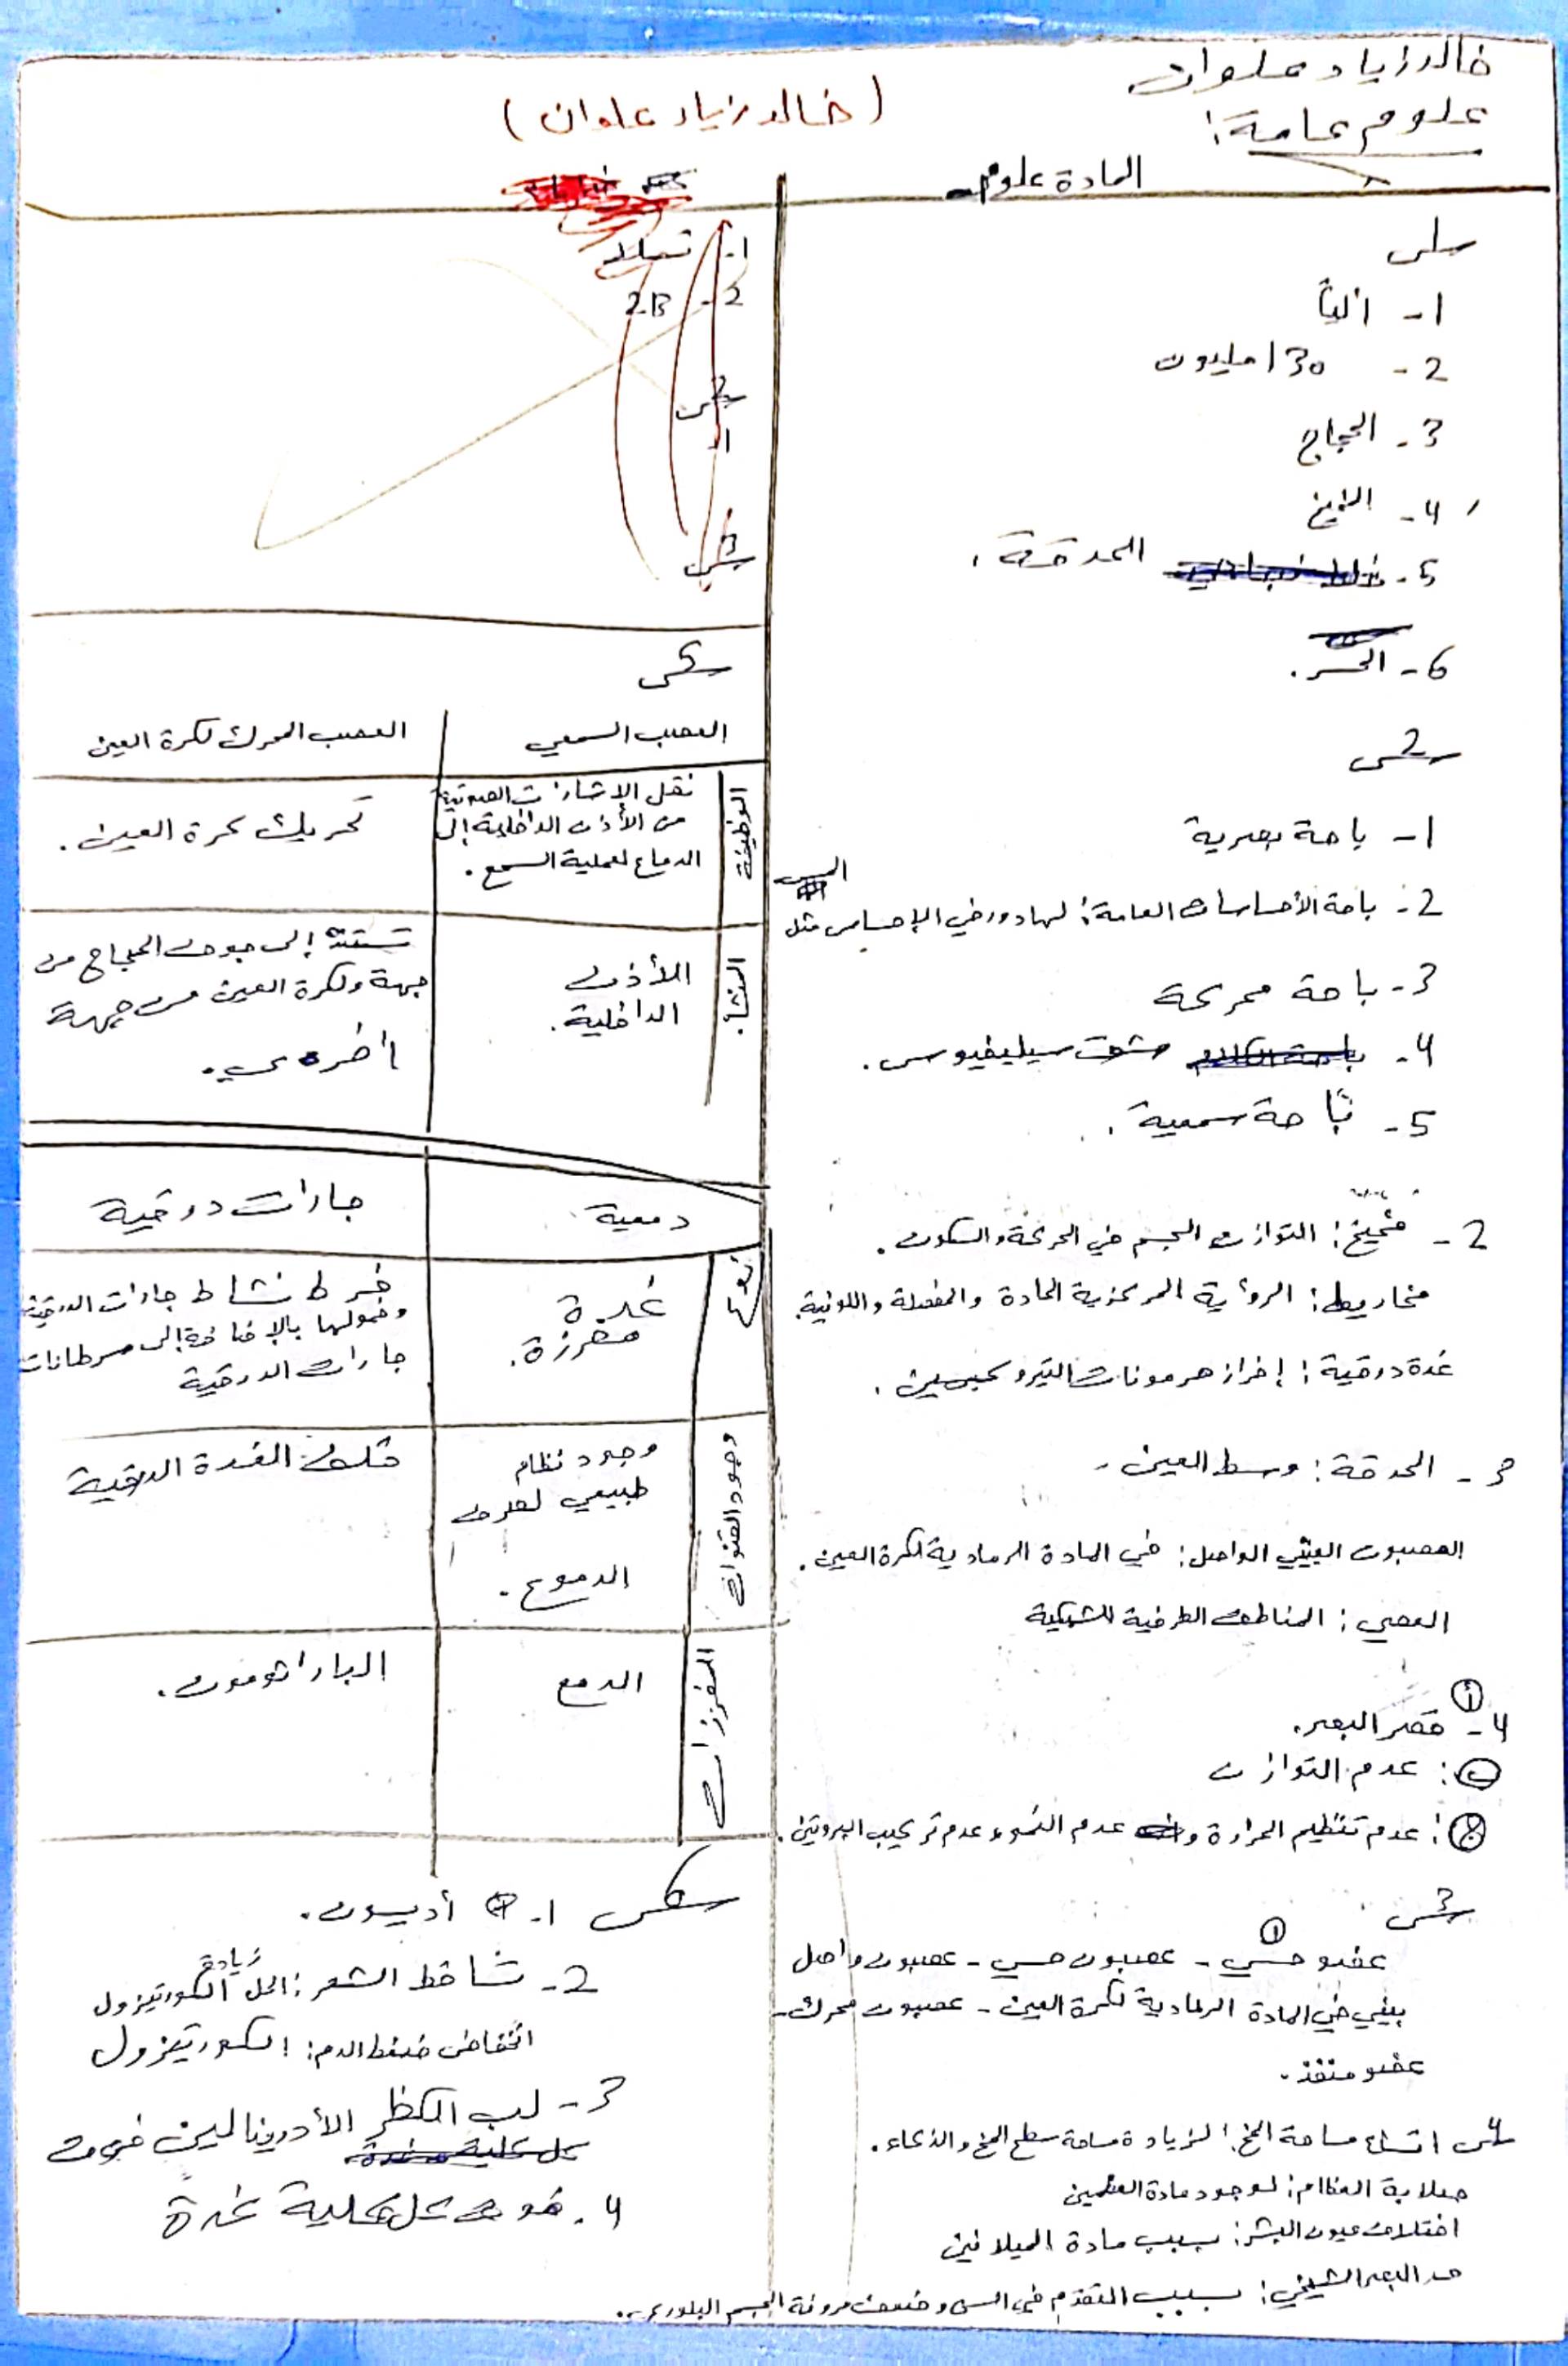 خالد زياد علوان
علوم عامة:
(خالد زياد علوان)
المادة علوم
س1
1- آلياً
2- 130 مليون
3- الحجاج
4- المخيخ
5- الحدقة.
6- الحسر.
س2
1- باحة بصرية
2- باحة الأحساسات العامة: لها دور في الإحساس مثل اللمس
3- باحة محركة
4- شق سيليفيوس.
5- باحة سمعية.
2- مخيخ: التوازن الجسم في الحركة والسكون.
مخاريط: الرؤية المركزية الحادة والمفصلة واللونية.
غدة درقية: إخراز هرمونات التيروكسين.
3- الحدقة: وسط العين.
العصبون البيني الواصل: في المادة الرمادية لكرة العين.
العصي: المناطق الطرفية للشبكية
4- أ قصر البصر.
ب: عدم التوازن
ج: عدم تنظيم الحرارة و عدم النمو وعدم تركيب البروتين.
س3
عضو حسي - عصبون حسي - عصبون واصل
بيني في المادة الرمادية لكرة العين - عصبون محرك -
عضو منفذ.
س4 اتساع مساحة المخ: لزيادة مساحة سطح المخ والذكاء.
صلابة العظام: لوجود مادة العظمين
اختلاف عيون البشر: بسبب مادة الميلانين
مد البصر الشيخي: بسبب التقدم في السن وضعف مرونة الجسم البلوري.
1-
2- 2B
س2
1-
س3
س5
العصب السمعي العصب المحرك لكرة العين
الوظيفة
نقل الإشارات الصوتية
من الأذن الداخلية إلى
الدماغ لعملية السمع.
تحريك كرة العين.
المنشأ.
الأذن
الداخلية.
تستند إلى جوف الحجاج من
جهة ولكرة العين من جهة
اخرى.
دمعية جارات درقية
نوع
غدة
مفرزة.
فرط نشاط جارات الدرقية
وخمولها بالإضافة إلى سرطانات
جارات الدرقية
وجود القنوات
وجود نظام
طبيعي لصرف
الدموع.
خلف الغدة الدرقية
المفرزات
الدمع
الباراثومون.
س6 1- أديسون.
2- تساقط الشعر: الحل زيادة الكورتيزول
انخفاض ضغط الدم: الكورتيزول
3- لب الكظر الأدرينالين فوق
4- فوق كل كلية غدة